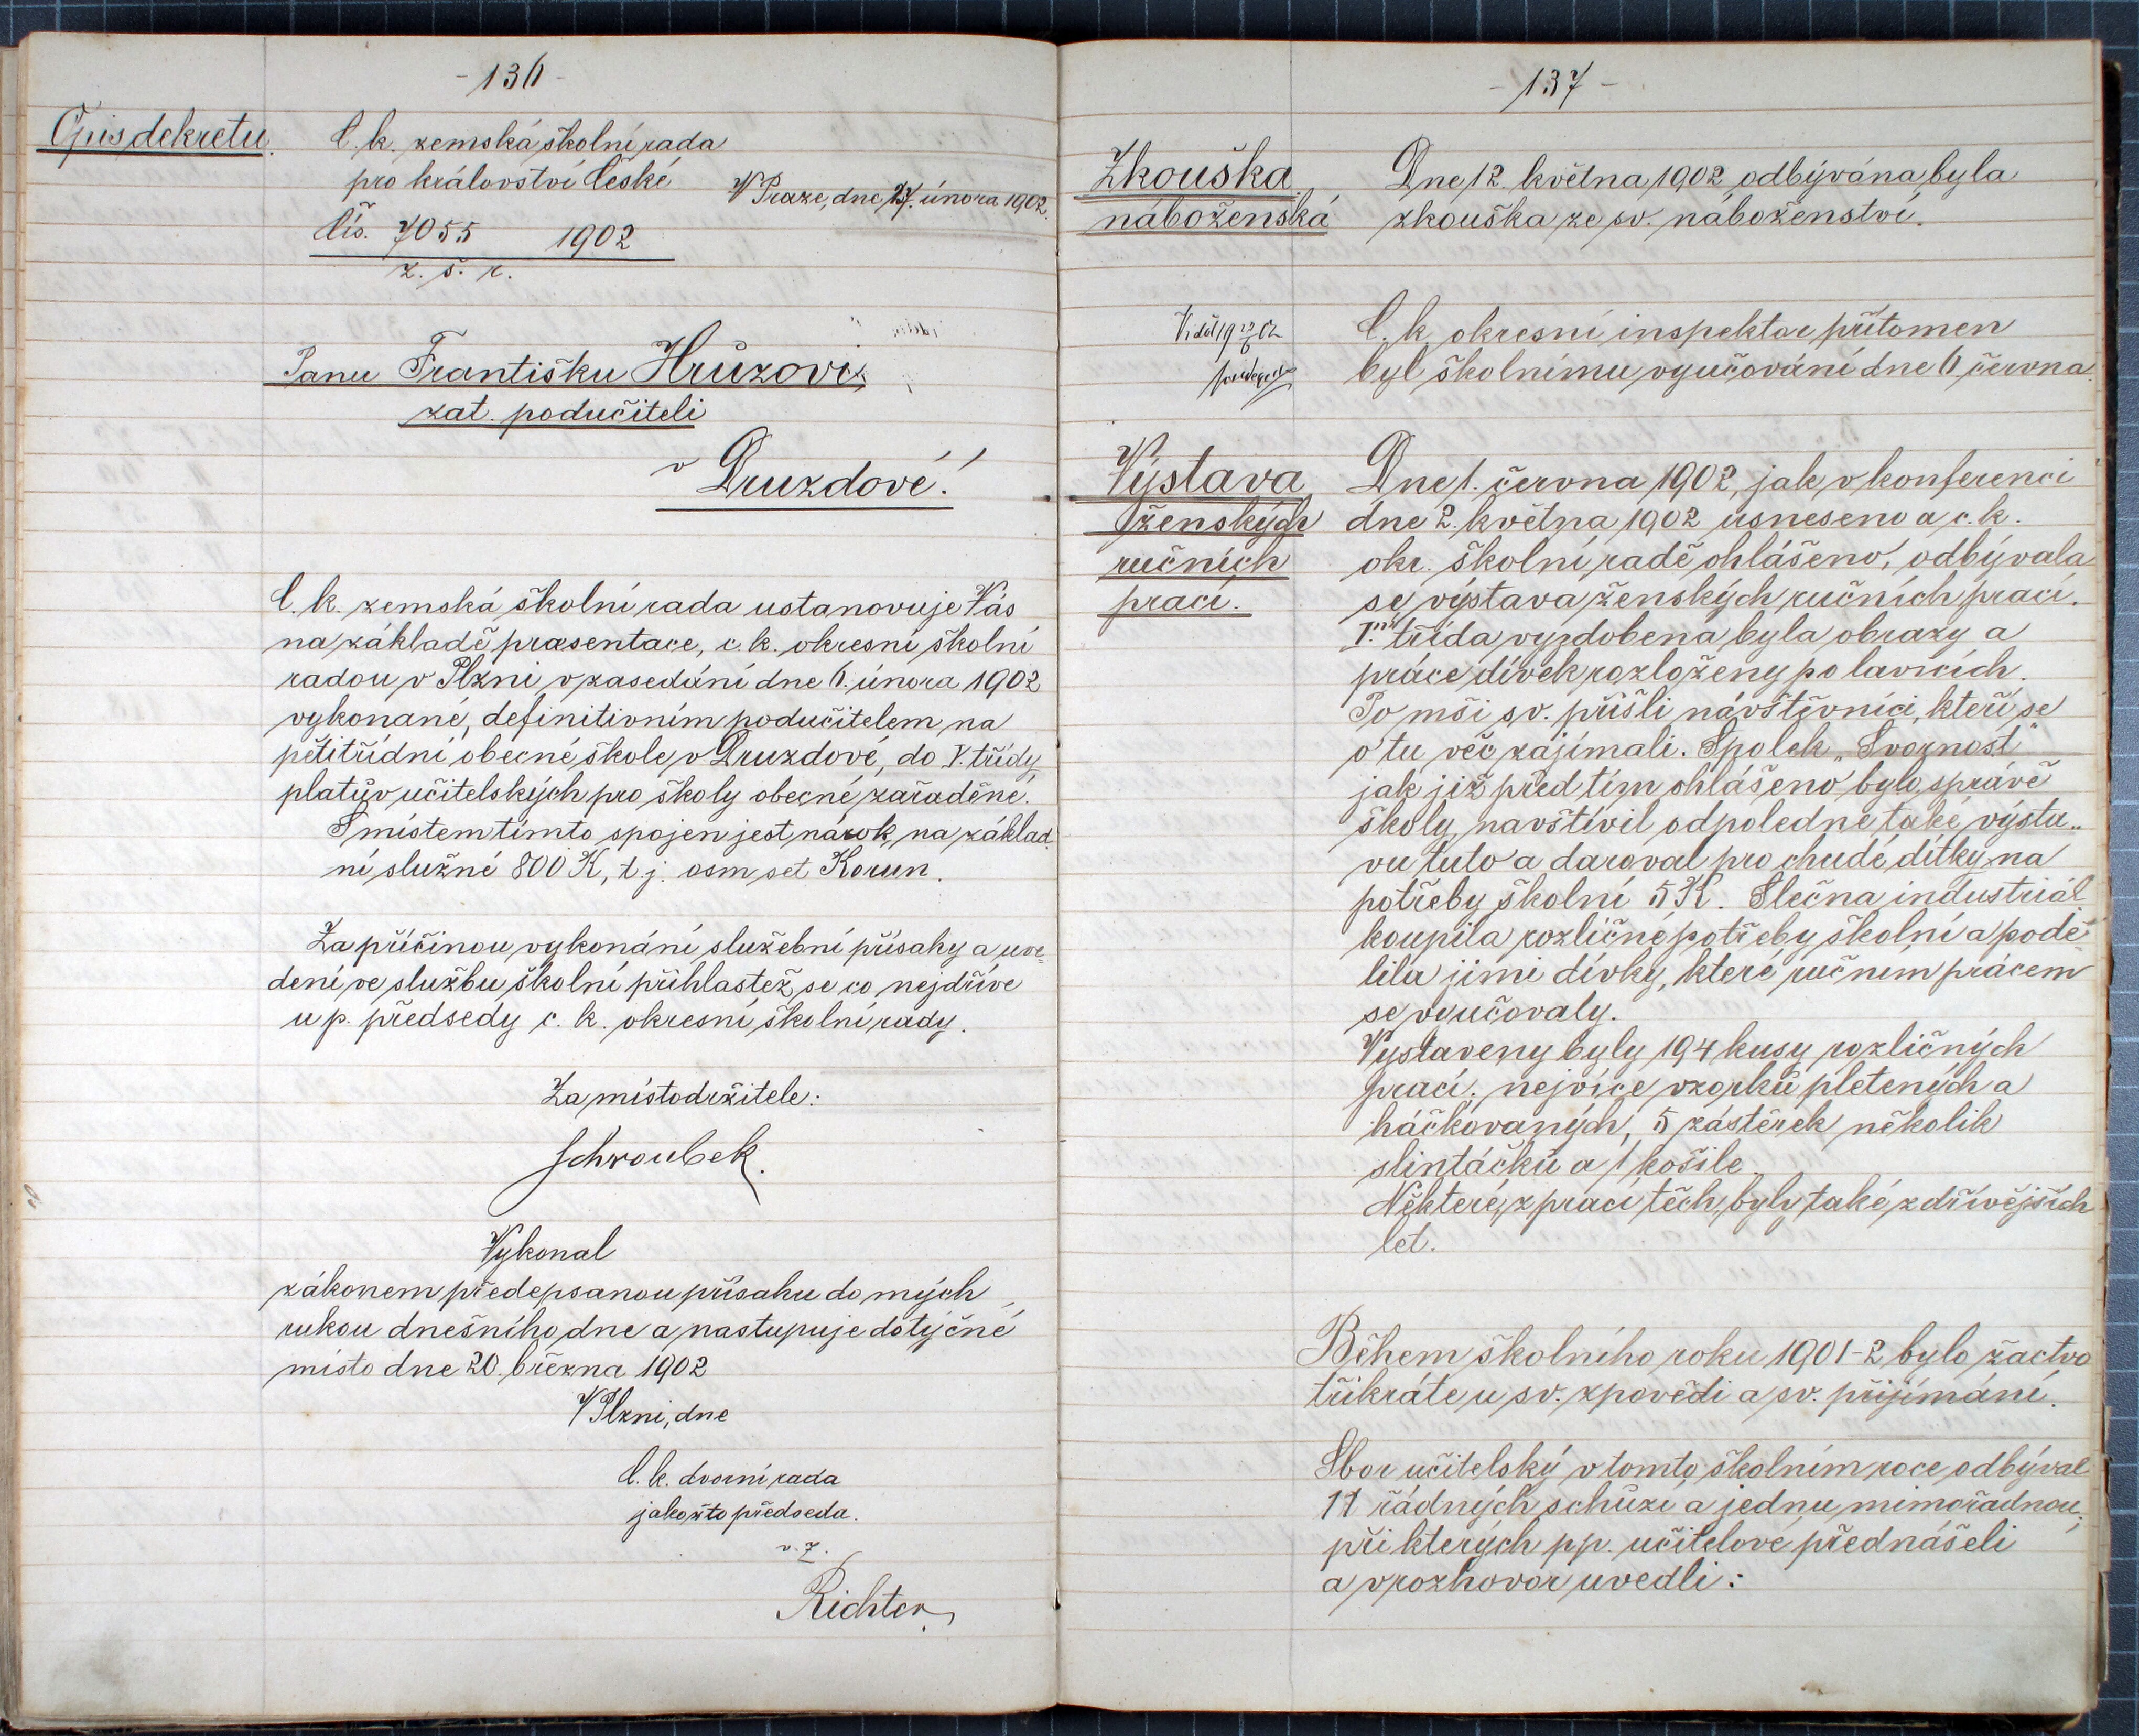 - 136 -
Opis dekretu.
C. k. zemská školní rada
pro království České
V Praze, dne 27. února 1902.
Čís. 7055 1902
z. š. r.
Panu Františku Hrůzovi,
zat. podučiteli
v Druzdové!
C. k. zemská školní rada ustanovuje Vás
na základě praesentace, c. k. okresní školní
radou v Plzni v zasedání dne 6. února 1902
vykonané, definitivním podučitelem na
pětitřídní obecné škole v Druzdové, do V. třídy
platův učitelských pro školy obecné zařaděné.
S místem tímto spojen jest nárok na základ
ní služné 800 K, t. j. osm set Korun.
Za příčinou vykonání služební přísahy a uve=
dení ve službu školní přihlastež se co nejdříve
u p. předsedy c. k. okresní školní rady.
Za místodržitele:
Schroubek.
Vykonal
zákonem předepsanou přísahu do mých
rukou dnešního dne a nastupuje dotyčné
místo dne 20. března 1902
V Plzni, dne
C. k. dvorní rada
jakožto předseda.
v. z.
Richter
- 137 -
Zkouška
náboženská
Dne 12. května 1902 odbývána byla
zkouška ze sv. náboženství.
Viděl 19
C. k. okresní inspektor přítomen
byl školnímu vyučování dne 6 června.
Výstava
ženských
ručních
prací.
Dne 1. června 1902, jak v konferenci
dne 2. května 1902 usneseno a c. k.
okr. školní radě ohlášeno, odbývala
se výstava ženských ručních prací.
I. třída vyzdobena byla obrazy a
práce dívek rozloženy po lavicích.
Po mši sv. přišli návštěvníci, kteří se
o tu věc zajímali. Spolek „Svornost"
jak již před tím ohlášeno bylo správě
školy, navštívil odpoledne také výsta„
vu tuto a daroval pro chudé dítky na
potřeby školní 5 K. Slečna industriál.
koupila rozličné potřeby školní a podě-
lila jimi dívky, které ručním pracem
se vyučovaly.
Vystaveny byly 194 kusy rozličných
prací; nejvíce vzorků pletených a
háčkovaných, 5 zástěrek několik
slintáčků a 1 košile.
Některé z prací těch byly také z dřívějších
let.
Během školního roku 1901-2 bylo žactvo
třikráte u sv. zpovědi a sv. přijímání.
Sbor učitelský v tomto školním roce odbýval
11 řádných schůzí a jednu mimořadnou,
při kterých pp. učitelové přednášeli
a v rozhovor uvedli: